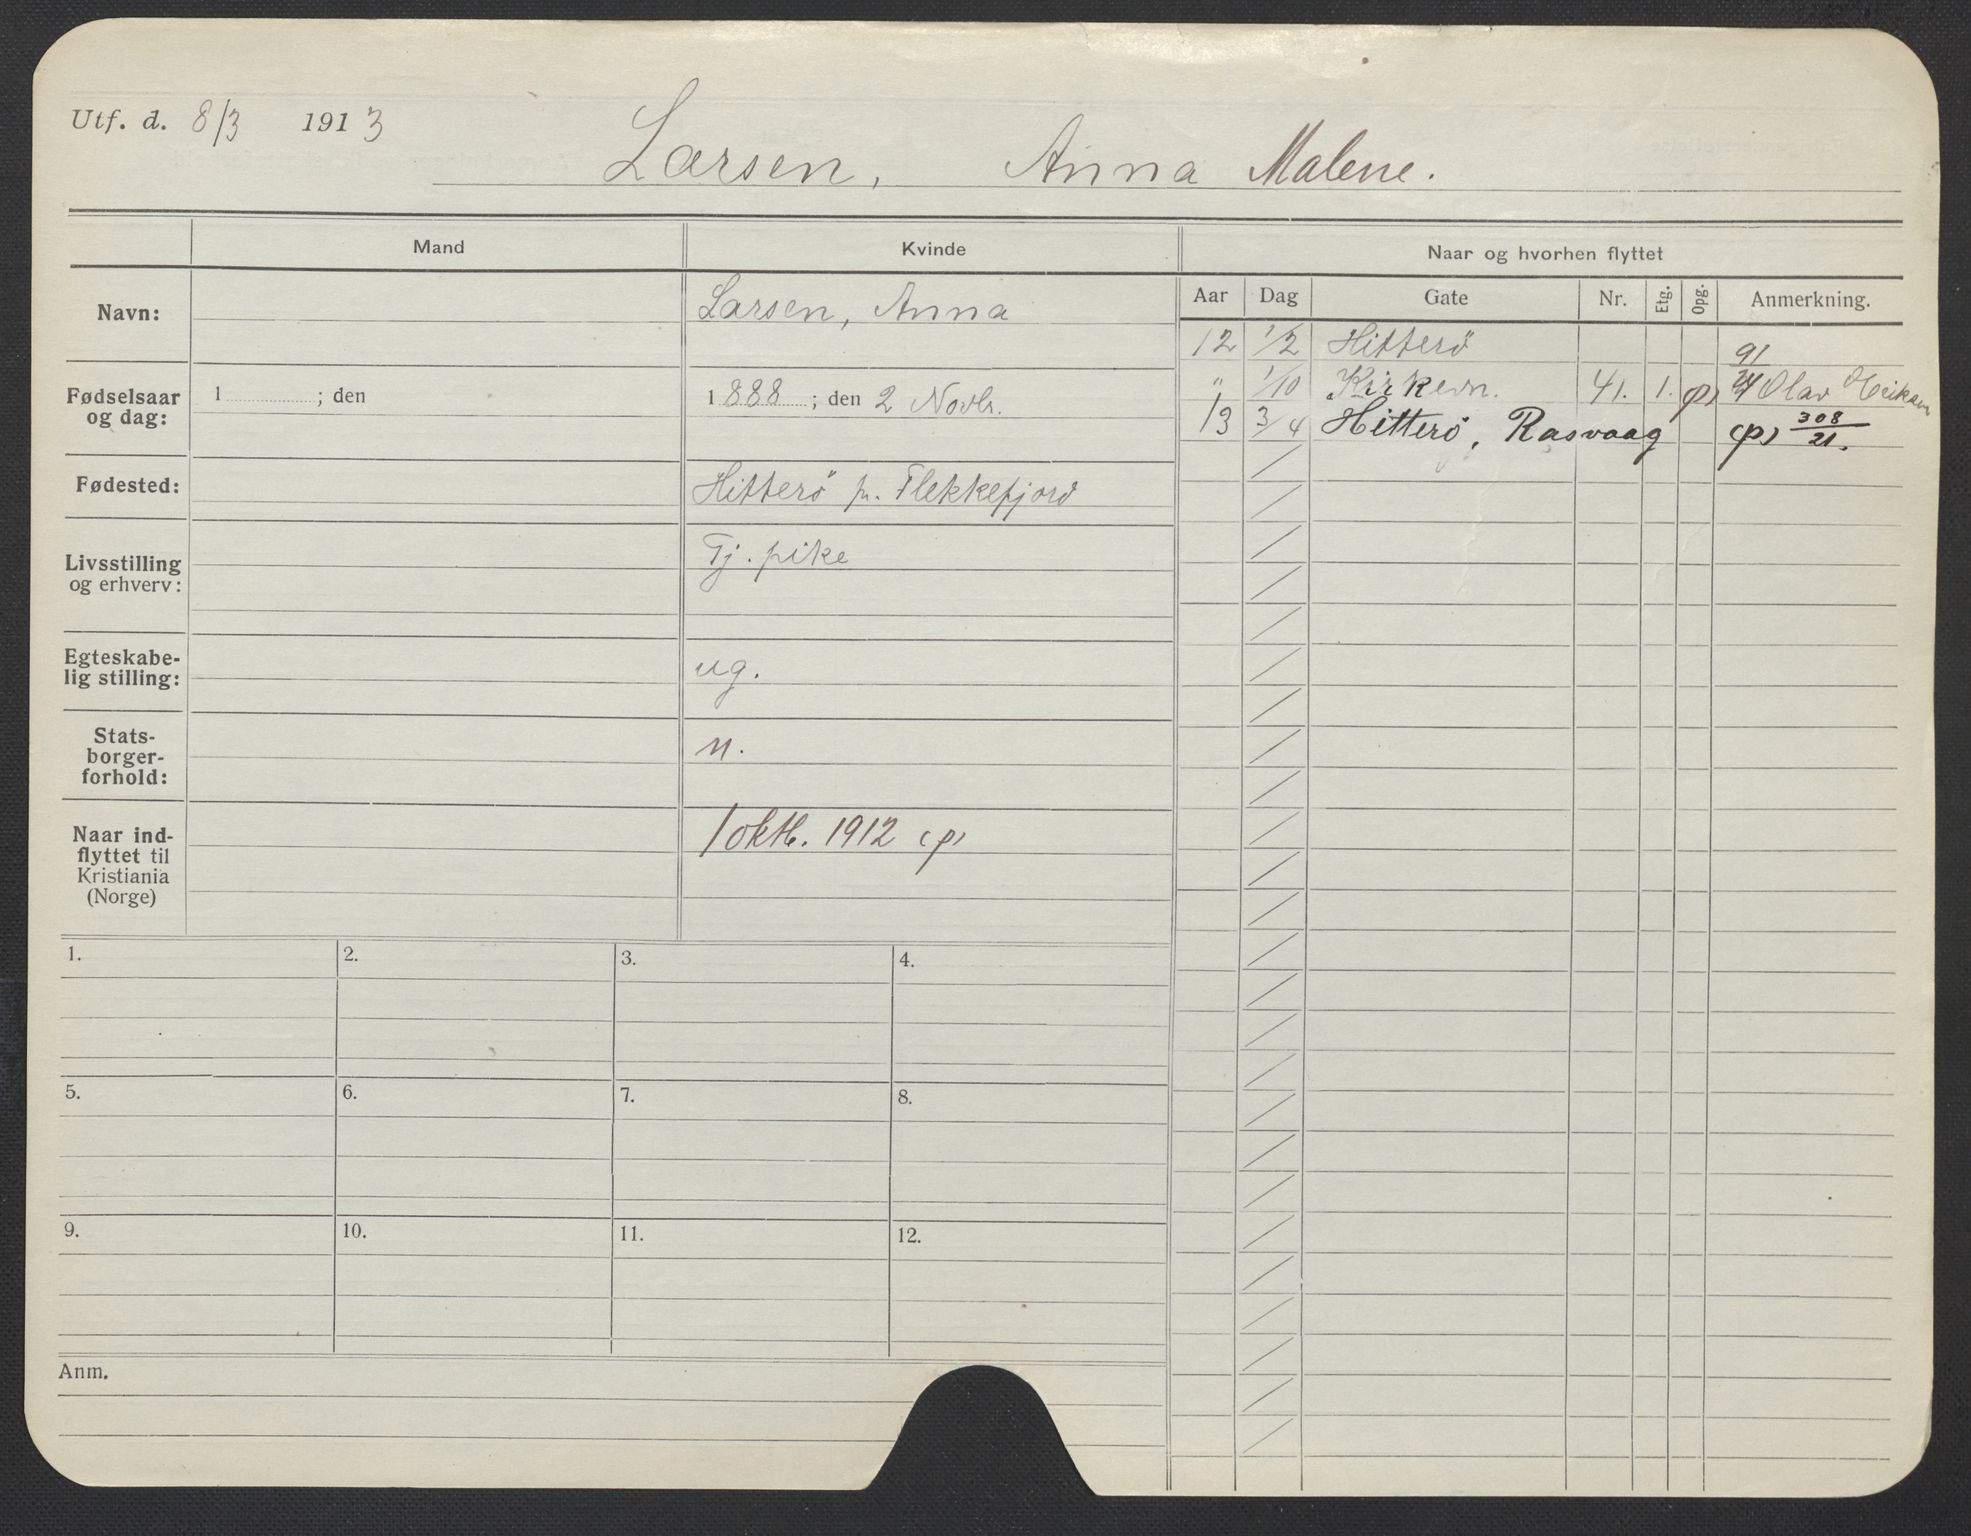 Utf. d. 8/3 1913
Larsen, Anna Malene.
Mand
Kvinde
Naar og hvorhen flyttet
Navn:
Larsen, Anna
Fødselsaar
og dag:
1 ; den
1888 ; den 2 Novbr.
Fødested:
Hitterö pr. Flekkefjord
Livsstilling
og erhverv:
Tj. pike
Egteskabe-
lig stilling:
ug.
Stats-
borger-
forhold:
n.
Naar ind-
flyttet til
Kristiania
(Norge)
1 oktb. 1912 (p)
Aar Dag Gate Nr. Etg. Opg. Anmerkning.
12 1/2 Hitterö
" 1/10 Kirkevn. 41. 1. (p) Olav
13 3/4 Hitterö, Rasvaag (p) 308/21.
1. 2. 3. 4.
5. 6. 7. 8.
9. 10. 11. 12.
Anm.